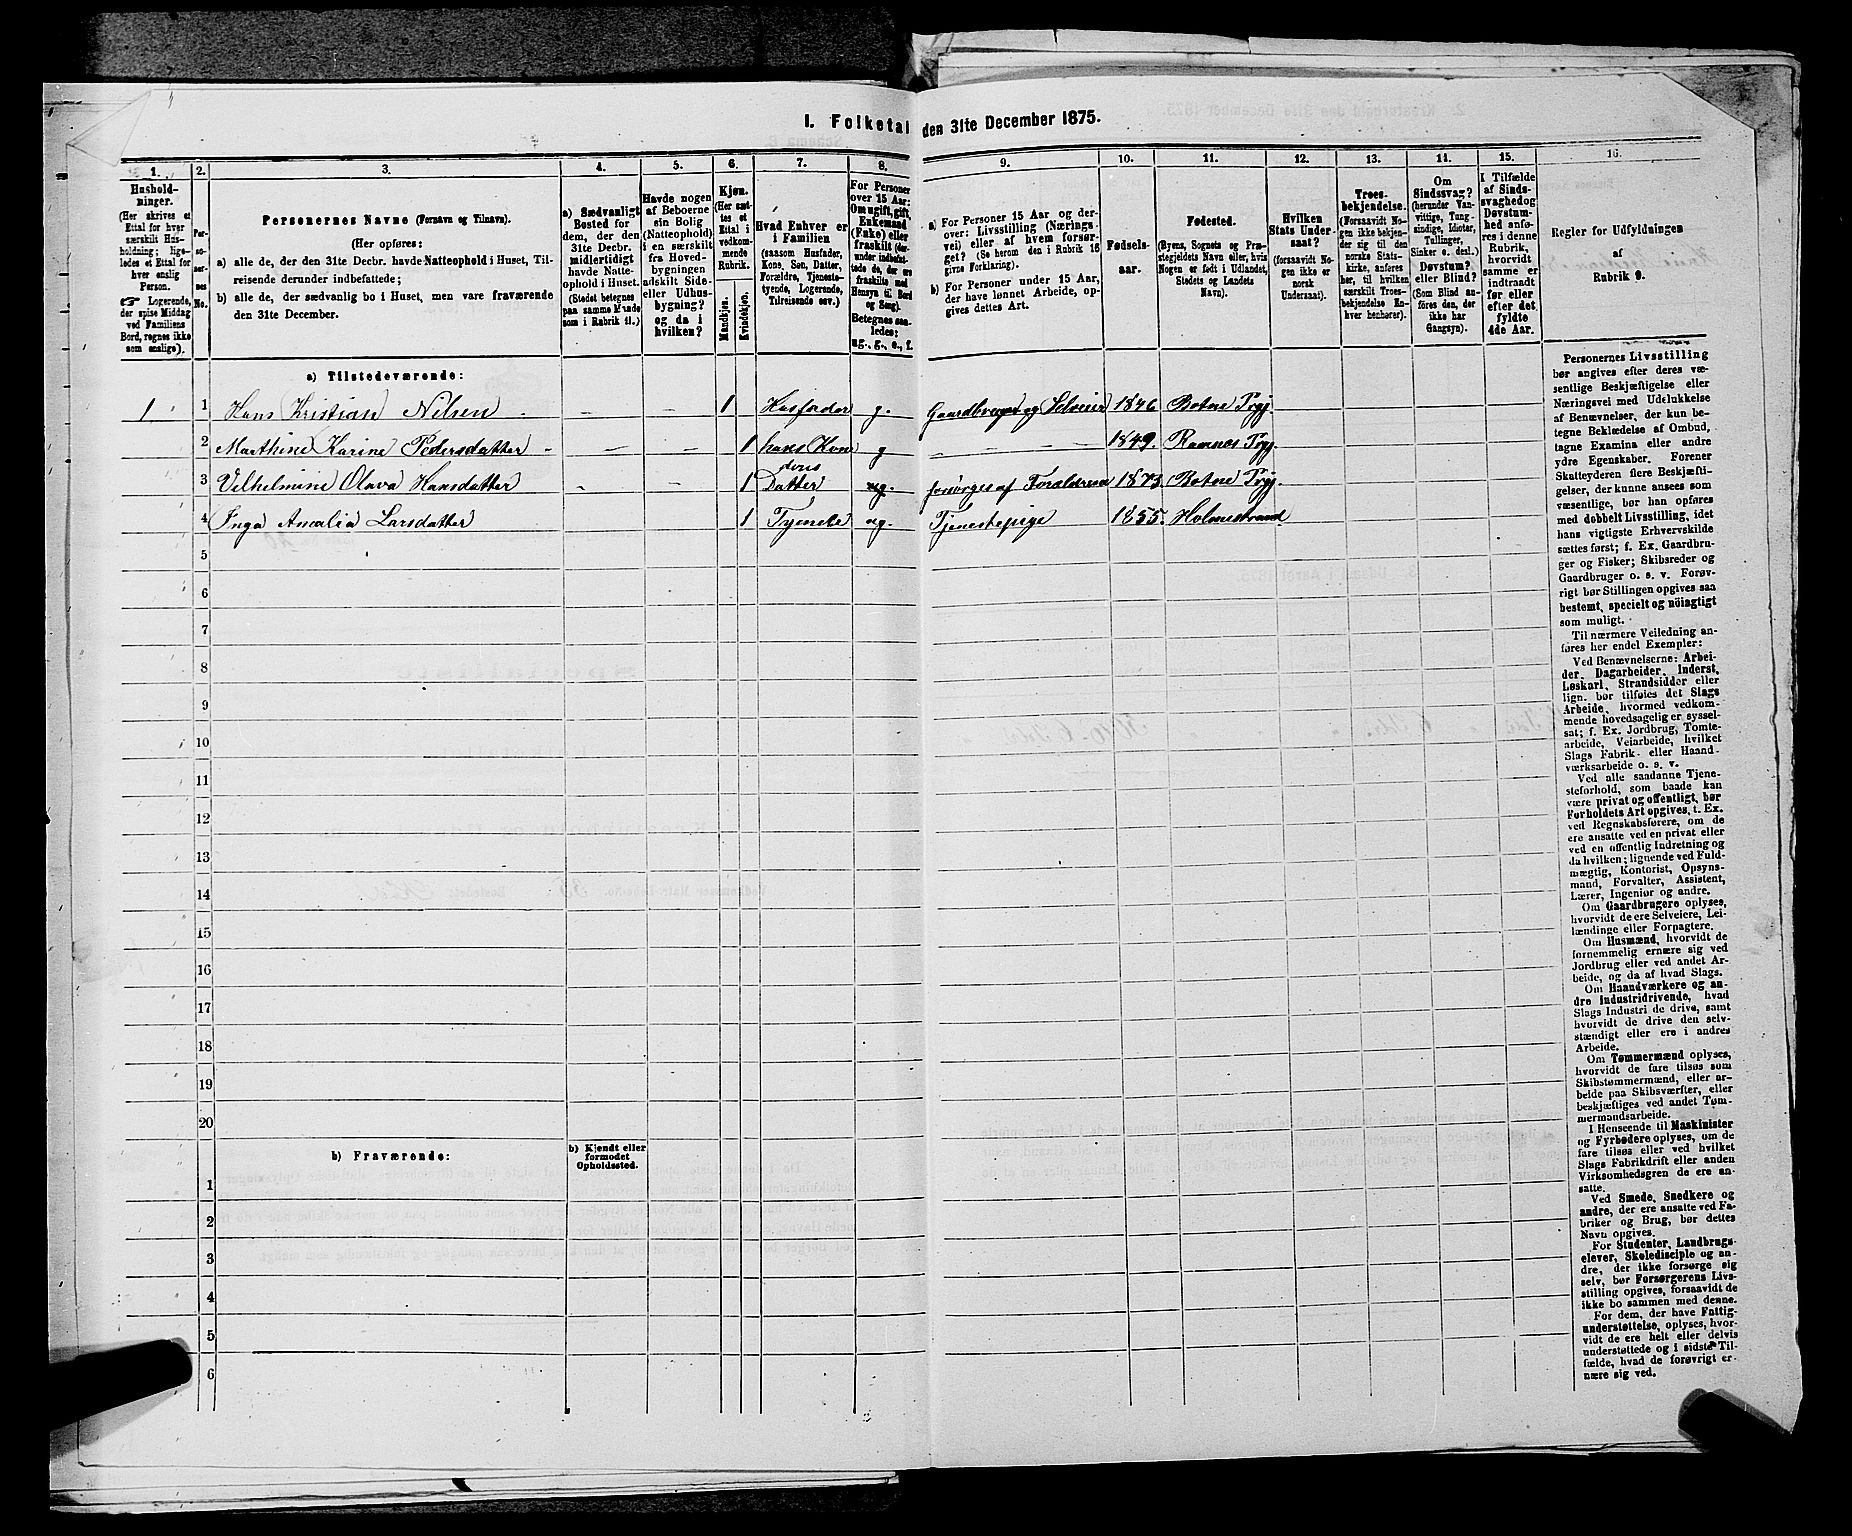 I. Folketal
den 31te December 1875.
1.
2.
3.
4.
5.
6.
7.
8.
9.
10.
11.
12.
13.
14.
15.
16.
Hushold-
ninger.
(Her skrives et
Ettal for hver
særskilt Hus-
holdning; lige-
ledes et Ettal for
hver enslig
Person.
☞ Logerende,
der spise Middag
ved Familiens
Bord, regnes ikke
som enslige).
Per-
so-
ner-
nes
No.
Personernes Navne (Fornavn og Tilnavn).
(Her opføres:
a) alle de, der den 31te Decbr. havde Natteophold i Huset, Til-
reisende derunder indbefattede;
b) alle de, der sædvanlig bo i Huset, men vare fraværende
den 31te December.
a) Sædvanligt
Bosted for
dem, der den
31te Decbr.
midlertidigt
havde Natte-
ophold i Huset.
(Stedet betegnes
paa samme Maade
som i Rubrik 11.)
Havde nogen
af Beboerne
sin Bolig
(Natteophold)
i en særskilt
fra Hoved-
bygningen
adskilt Side-
eller Udhus-
bygning?
og da i
hvilken?
Kjøn.
(Her sæt-
tes et
Ettal i
vedkom-
mende
Rubrik.
Mandkjøn.
Kvindekjøn.
Hvad Enhver er
i Familien
(saasom Husfader,
Kone, Søn, Datter,
Forældre, Tjeneste-
tyende, Logerende,
Tilreisende osv.)
For Personer
over 15 Aar:
Om ugift, gift,
Enkemand
(Enke) eller
fraskilt (der-
under indbefat-
tede de, der ere
fraskilte med
Hensyn til Bord
og Seng).
Betegnes saa-
ledes:
ug., g., e., f.
a) For Personer 15 Aar og der-
over: Livsstilling (Nærings-
vei) eller af hvem forsør-
get? (Se herom den i Rubrik 16
givne Forklaring).
b) For Personer under 15 Aar,
der have lønnet Arbeide, op-
gives dettes Art.
Fødsels-
aar.
Fødested.
(Byens, Sognets og Præ-
stegjeldets Navn eller, hvis
Nogen er født i Udlandet,
Stedets og Landets
Navn).
Hvilken
Stats Under-
saat?
(forsaavidt No-
gen ikke er
norsk
Undersaat).
Troes-
bekjendelse.
(Forsaavidt No-
gen ikke bekjen-
der sig til den
norske Stats-
kirke, anføres
her, til hvilken
særskilt Troes-
bekjendelse En-
hver henhører).
Om
Sindssvag?
(herunder Van-
vittige, Tung-
sindige, Idioter,
Tullinger,
Sinker o. desl.)
Døvstum?
eller Blind?
(Som Blind an-
føres den, der
ikke har
Gangsyn).
I Tilfælde
af Sinds-
svaghed og
Døvstum-
hed anfø-
res i denne
Rubrik,
hvorvidt
samme er
indtraadt
før eller
efter det
fyldte
4de Aar.
Regler for Udfyldningen
af
Rubrik 9.
a) Tilstedeværende:
1 1 Hans Kristian Nilsen - - 1 Husfader g. Gaardbruger og Selveier 1846 Botne Prgj
2 Marthine Karine Pedersdatter - - - 1 hans Kone g - - 1849. Ramnes Prgj.
3 Vilhelmine Olava Hansdatter - - 1 deres Datter ug. forsørges af Forældrene 1873. Botne Prgj.
4 Inga Amalia Larsdatter 1 Tjenete ug. Tjenestepige 1855. Holmestrand
5
6
7
8
9
10
11
12
13
14
15
16
17
18
19
20
b) Fraværende:
b) Kjendt eller
formodet
Opholdssted.
1
2
3
4
5
6
Personernes Livsstilling
bør angives efter deres væ-
sentlige Beskjæftigelse eller
Næringsvei med Udelukkelse
af Benævnelser, der kun be-
tegne Beklædelse af Ombud,
tagne Examina eller andre
ydre Egenskaber. Forener
Skatteyderen flere Beskjæfti-
gelser, der kunne ansees som
væsentlige, bør han opføres
med dobbelt Livsstilling, idet
hans vigtigste Erhvervskilde
sættes først; f. Ex. Gaardbru-
ger og Fisker; Skibsreder og
Gaardbruger o. s. v. Forøv-
rigt bør Stillingen opgives saa
bestemt, specielt og nöiagtigt
som muligt.
Til nærmere Veiledning an-
føres her endel Exempler:
Ved Benævnelserne: Arbei-
der, Dagarbeider, Inderst,
Løskarl, Strandsidder eller
lign. bør tilføies det Slags
Arbeide, hvormed vedkom-
mende hovedsagelig er syssel-
sat; f. Ex. Jordbrug, Tomte-
arbeide, Veiarbeide, hvilket
Slags Fabrik- eller Haand-
værksarbeide o. s. v.
Ved alle saadanne Tjene-
steforhold, som baade kan
være privat og offentligt, bør
Forholdets Art opgives, t. Ex.
ved Regnskabsførere, om de
ere ansatte ved en privat eller
ved en offentlig Indretning og
da hvilken; lignende ved Fuld-
mægtig, Kontorist, Opsyns-
mand, Forvalter, Assistent,
Lærer, Ingeniør og andre.
Om Gaardbrugere oplyses,
hvorvidt de ere Selveiere, Lei-
lændinge eller Forpagtere.
Om Husmænd, hvorvidt de
fornemmelig ernære sig ved
Jordbrug eller ved andet Ar-
beide, og da af hvad Slags.
Om Haandværkere og an-
dre Industridrivende, hvad
Slags Industri de drive, samt
hvorvidt de drive den selv-
stændigt eller ere i andres
Arbeide.
Om Tømmermænd oplyses,
hvorvidt de fare tilsøs som
Skibstømmermænd, eller ar-
beide paa Skibsværfter, eller
beskjæftiges ved andet Tøm-
mermandsarbeide.
I Henseende til Maskinister
og Fyrbødere oplyses, om de
fare tilsøs eller ved hvilket
Slags Fabrikdrift eller anden
Virksomhedsgren de ere an-
satte.
Ved Smede, Snedkere og
andre, der ere ansatte ved Fa-
briker og Brug, bør dettes
Navn opgives.
For Studenter, Landbrugs-
elever, Skoledisciple og an-
dre, der ikke forsørge sig
selv, bør Forsørgerens Livs-
stilling opgives, forsaavidt de
ikke bo sammen med denne.
For dem, der have Fattig-
understøttelse, oplyses, hvor-
vidt de ere helt eller delvis
understøttede og i sidste Til-
fælde, hvad de forøvrigt er-
nære sig ved.